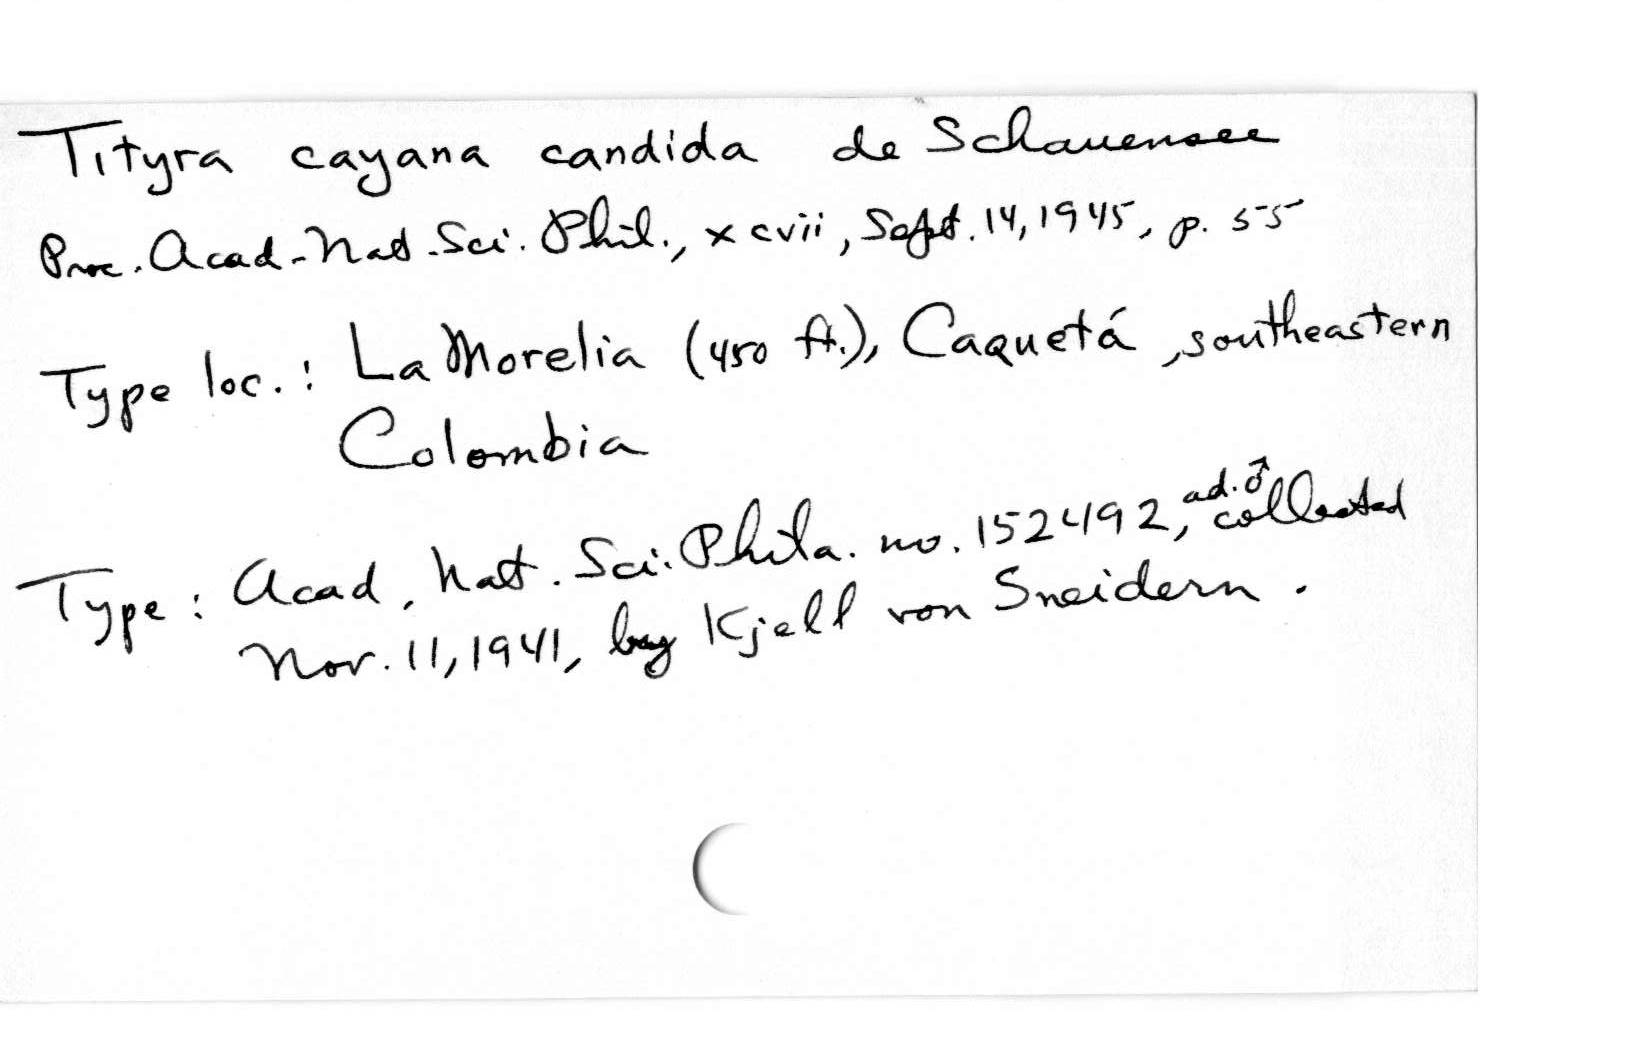 Tityra cayana candida de Schauensee
Proc. Acad. Nat. Sci. Phil., xcvii, Sept. 14, 1945, p. 55
Type loc.: La Morelia (450 ft.), Caquetá, southeastern
Colombia
Type: Acad. Nat. Sci. Phila. no. 152492, ad. ♂ collected
Nov. 11, 1941, by Kjell von Sneidern.